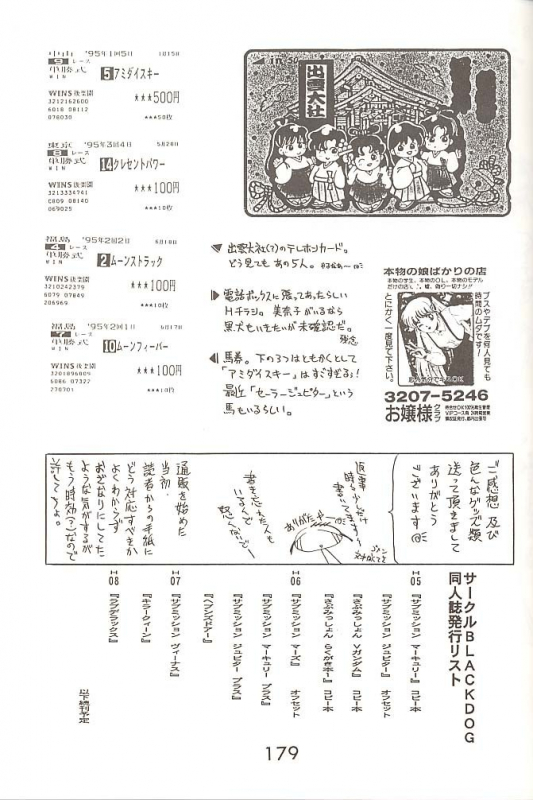 中山 '95年1月5日
9 レース
単勝式 WIN
5 アミダイスキー
WINS後楽園
★★★500円
3212162600
6018 08112
078030
★★★50枚
東京 '95年3回4日 5月28日
8 レース
単勝式 WIN
14 クレセントパワー
WINS後楽園
★★★100円
3213334741
C809 08140
069025
★★★10枚
福島 '95年2回2日 6月18日
4 レース
単勝式 WIN
2 ムーンストラック
WINS後楽園
★★★100円
3210242379
6079 07849
206969
★★★10枚
福島 '95年2回1日 6月17日
7 レース
単勝式 WIN
10 ムーンフィーバー
WINS後楽園
★★★100円
3201896809
6086 07322
270701
★★★10枚
出雲大社
出雲大社(?)のテレホンカード。
どう見てもあの5人。
電話ボックスに張ってあったらしい
Hチラシ。美奈子がいるなら
黒犬もいきたいが未確認だ。
残念
馬券。下の3つはともかくとして
「アミダイスキー」はすごすぎる!
最近「セーラージュピター」という
馬もいるらしい。
本物の娘ばかりの店
本物の学生、本物のOL、本物のモデル
ブスやデブを何人見ても
時間のムダです!
とにかく一度見て下さい。
3207-5246
お嬢様クラブ
ご感想 及び
色んなグッズ類
送って頂きまして
ありがとう
ございます
ありがたや
通販を始めた
当初、
読者からの手紙に
どう対応すべきか
よくわからず
おざなりにしてた
ような気がするが
もう時効(?)なので
許してちょ。
サークルBLACKDOG
同人誌発行リスト
H05
『サブミッション マーキュリー』 コピー本
『サブミッション ジュピター』 オフセット
『さぶみっしょん Vガンダム』 コピー本
『さぶみっしょん らくがきホー』 コピー本
H06
『サブミッション マーズ』 オフセット
『サブミッション マーキュリー プラス』
『サブミッション ジュピター プラス』
『ヘブンズドアー』
H07
『サブミッション ヴィーナス』
『キラークィーン』
H08
『ラブデラックス』
以下続刊予定
179